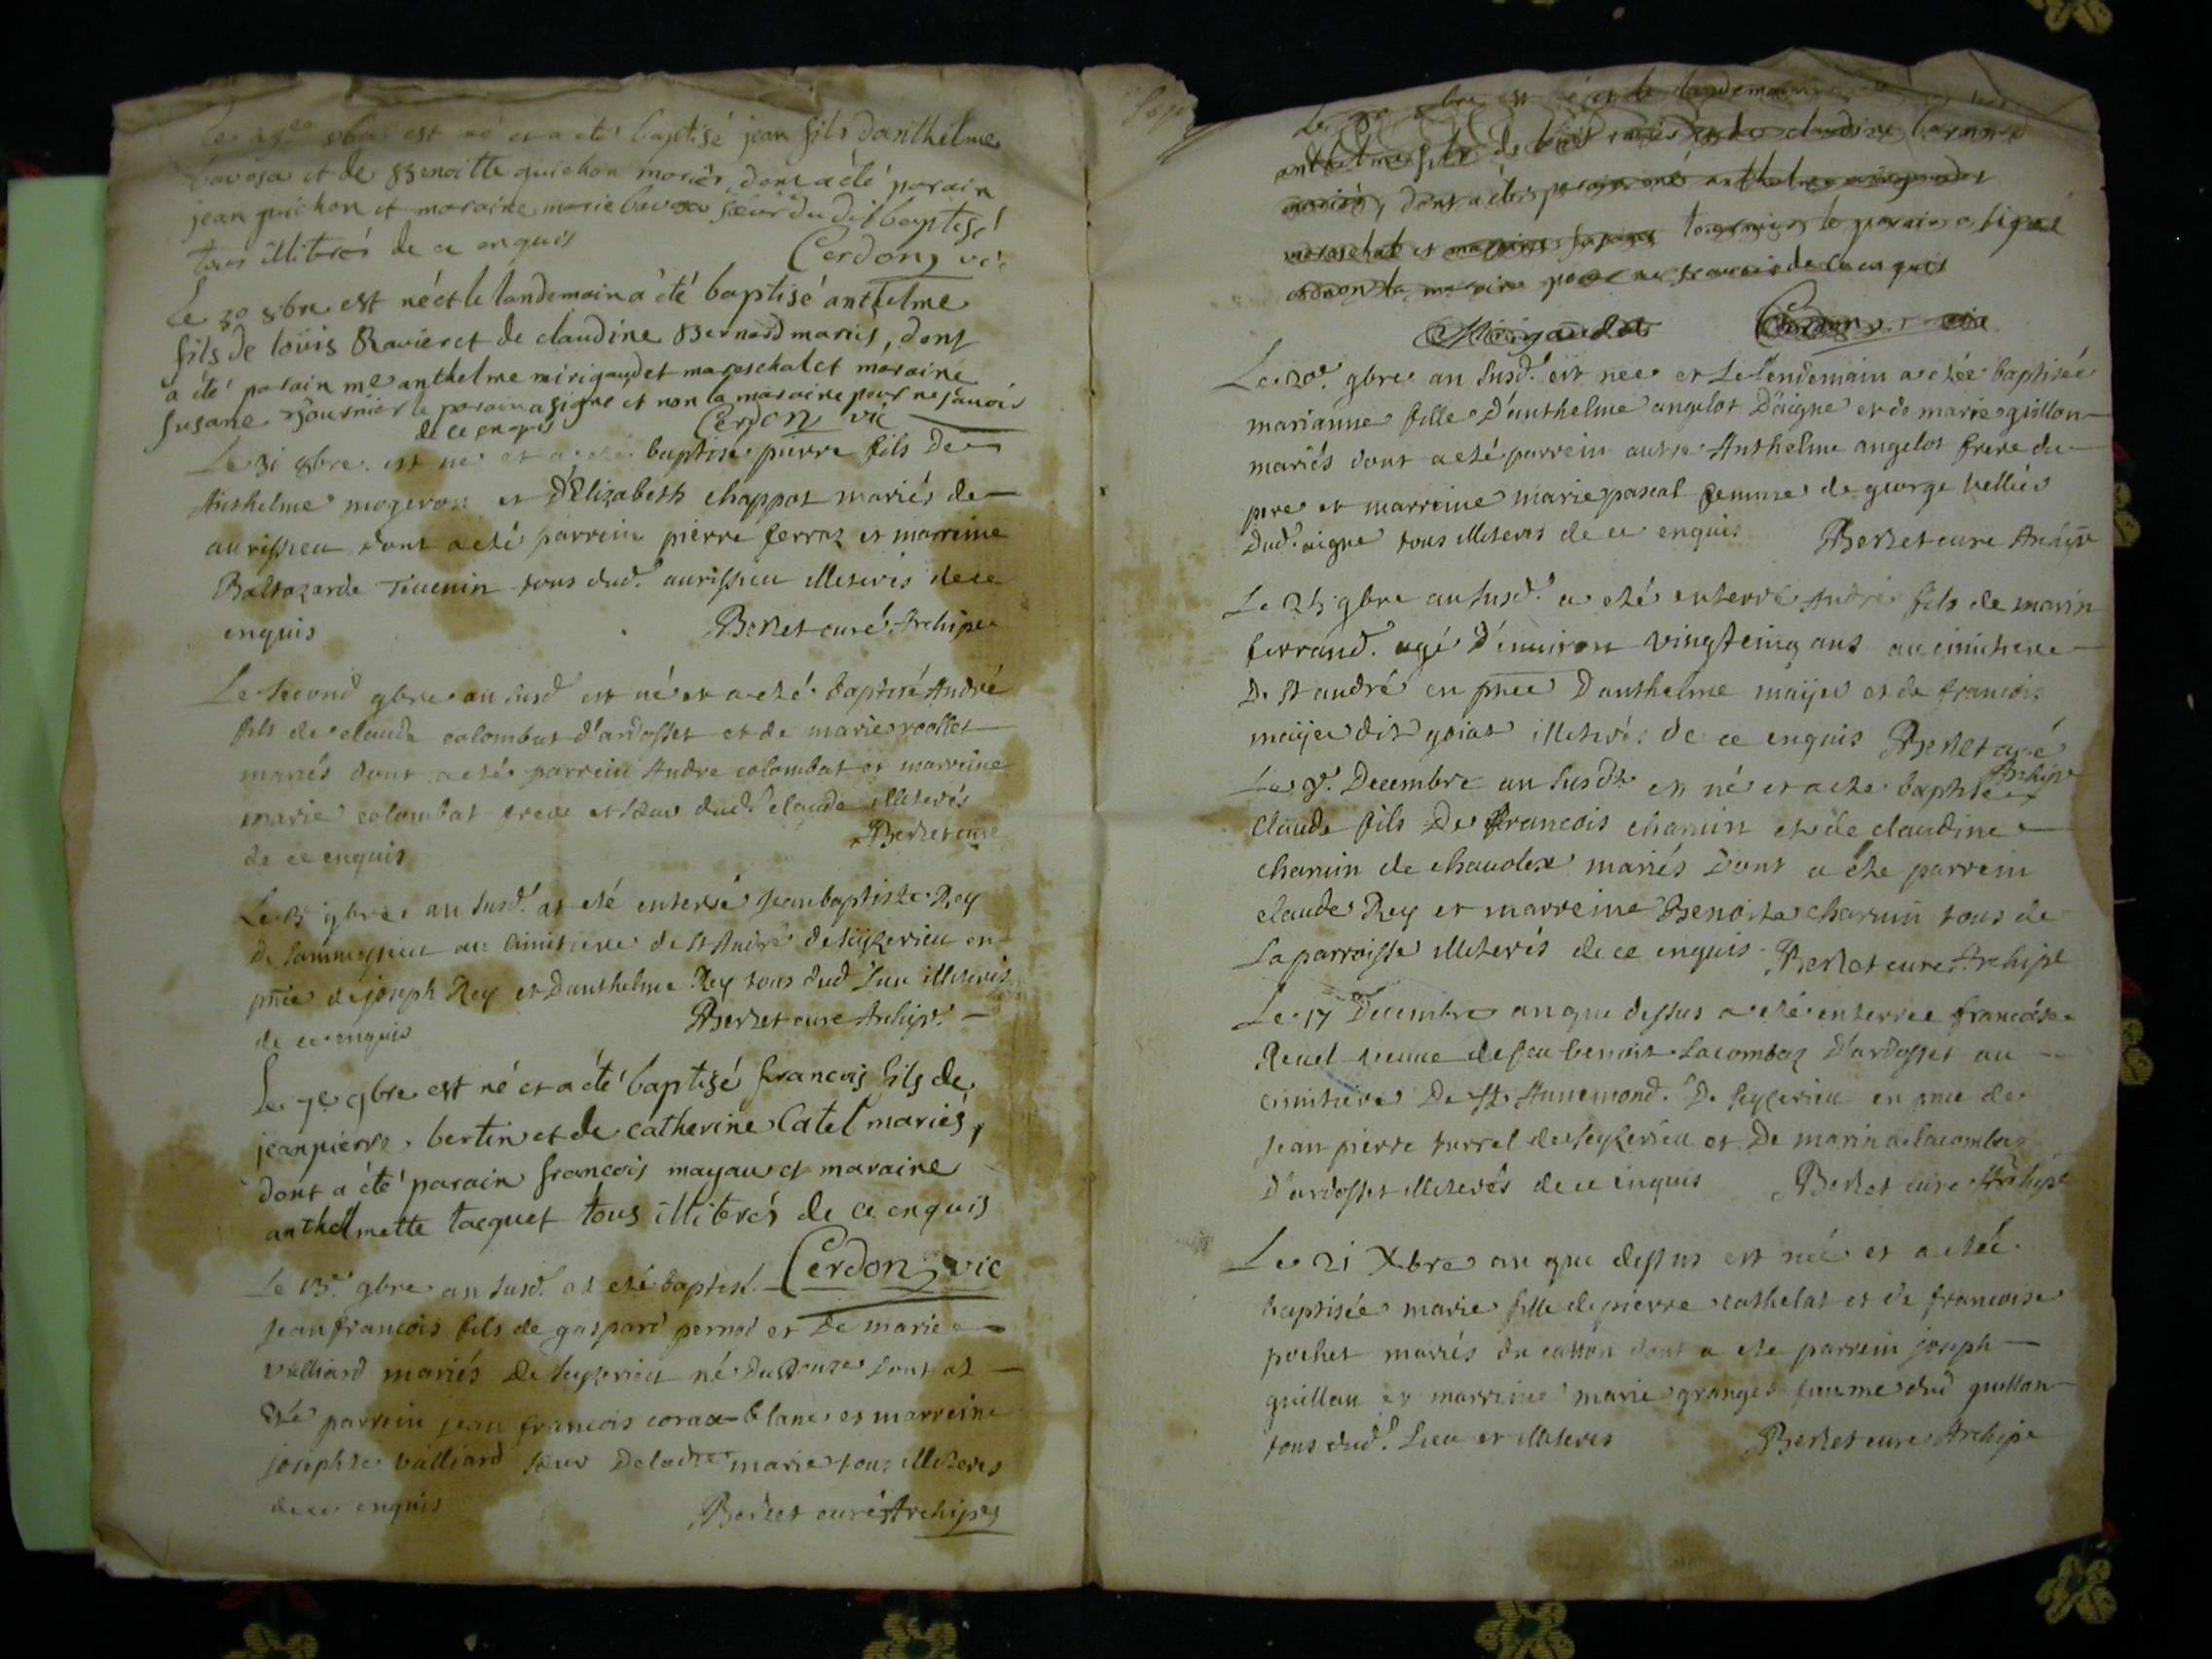 8bre est né et a été baptisé jean fils danthelme
bavosa et de Benoitte guichon mariés, dont a été parain
jean guichon et maraine marie bavosa sœur du dit baptisé
tous illitrés de ce enquis Cerdon, vic
Le 30 8bre est né et le landemain a été baptisé anthelme
fils de loüis Ravier et de claudine Bernard mariés, dont
a été parain me anthelme mirigaudet mareschal et maraine
susane le parain a signé et non la maraine pour ne sçavoir
de ce enquis Cerdon vic
Le 31 8bre est né et a été baptisé pierre fils de
Anthelme mogeron et d'Elizabeth chappot mariés de
aurissieu dont a eté parrein pierre ferraz et marreine
Baltazarde Tiuenin tous dud. aurissieu illiterés de ce
enquis Berlet curé Archipr
Le second 9bre an susd est né et a eté baptisé André
fils de claude colombat d'ardosset et de marie
mariés dont a eté parrein Andre colombat et marreine
marie colombat frere et sœur dud claude illiterés
de ce enquis Berlet curé
Le 9bre an susd. at eté enterré Jean baptiste Rey
de au cimitiere de St André de seÿzerieu en
pnce de joseph Rey et Danthelme Rey tous dud Lieu illiterés
de ce enquis Berlet cure Archipr.
Le 7e 9bre est né et a été baptisé francois fils de
jean pierre bertin et de catherine Catel mariés,
dont a été parain francois mayau et maraine
anthelmette tacquet tous illitrés de ce enquis
Cerdon, vic
Le 13e 9bre an susd. at eté baptisé
Jean francois fils de gaspard pernod et De marie
vulliard mariés de seyzerieu né du Douze Dont at
Eté parrein jean francois corax blanc et marreine
josephte vulliard sœur De ladte marie tous illiterés
de ce enquis Berlet curé Archipr
Le 30 8bre est né et le landemain
anthelme fils de loüis ravier et de claudine bernard
mariés, dont a été parain me anthelme mirigaudet
mareschal et maraine susane le parain a signé
et non la maraine pour ne scavoir de ce enquis
Mirigaudet Cerdon vic
Le 20e. 9bre an susd. est née et Le lendemain a etée baptisée
marianne fille D'anthelme angelot D'aigne et de marie guillon
mariés dont a eté parrein autre Anthelme angelot frere du
pere et marreine marie pascal femme de george Velliés
Dud. aigne tous illiterés de ce enquis Berlet cure Archipr
Le 9bre an susd. a eté enterré André fils de marin
ferrand. agé D'environ vingt cinq ans au cimitiere
De St andré en pnce D'anthelme maÿer et de francois
maÿer dit goiat illiterés de ce enquis Berlet curé
Archipr
Le Decembre an susdt est né et a eté baptisé
Claude fils De francois charvin et de claudine
charvin de mariés Dont a éte parrein
claude Rey et marreine Benoite charvin tous de
La parroisse illiterés de ce enquis Berlet cure Archipr
Le 17 Decembre an que dessus a eté enterrée francoise
Revel veuve de feu benoit Lacombaz D'ardosset au
cimitiere De St Annemond. De seyzerieu en pnce de
Jean pierre turrel de seyzerieu et De marin de lacombaz
D'ardosset illiterés de ce enquis Berlet cure Archipr
Le 21 Xbre an que dessus est née et a etée
baptisée marie fille de pierre cathelat et de francoise
pochet mariés de catton dont a ete parrein joseph
guillon et marreine marie granges femme dud guillon
tous dud. Lieu et illiterés Berlet cure Archipr